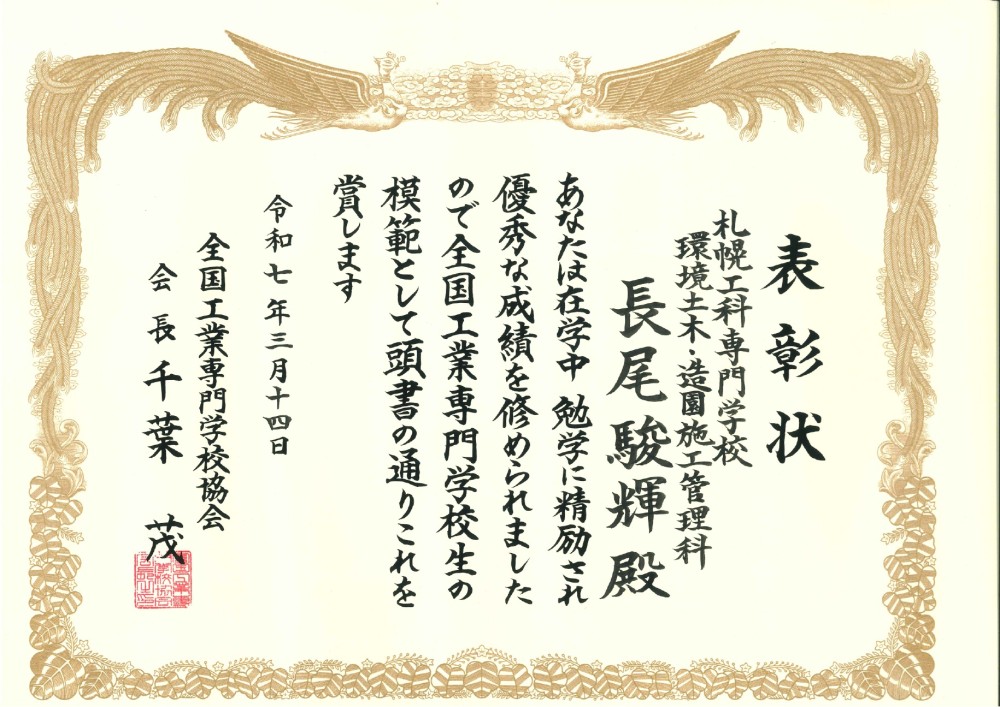 表彰状
札幌工科専門学校
環境土木・造園施工管理科
長尾駿輝殿
あなたは在学中勉学に精励され
優秀な成績を修められました
ので全国工業専門学校生の
模範として頭書の通りこれを
賞します
令和七年三月十四日
全国工業専門学校協会
会長千葉茂